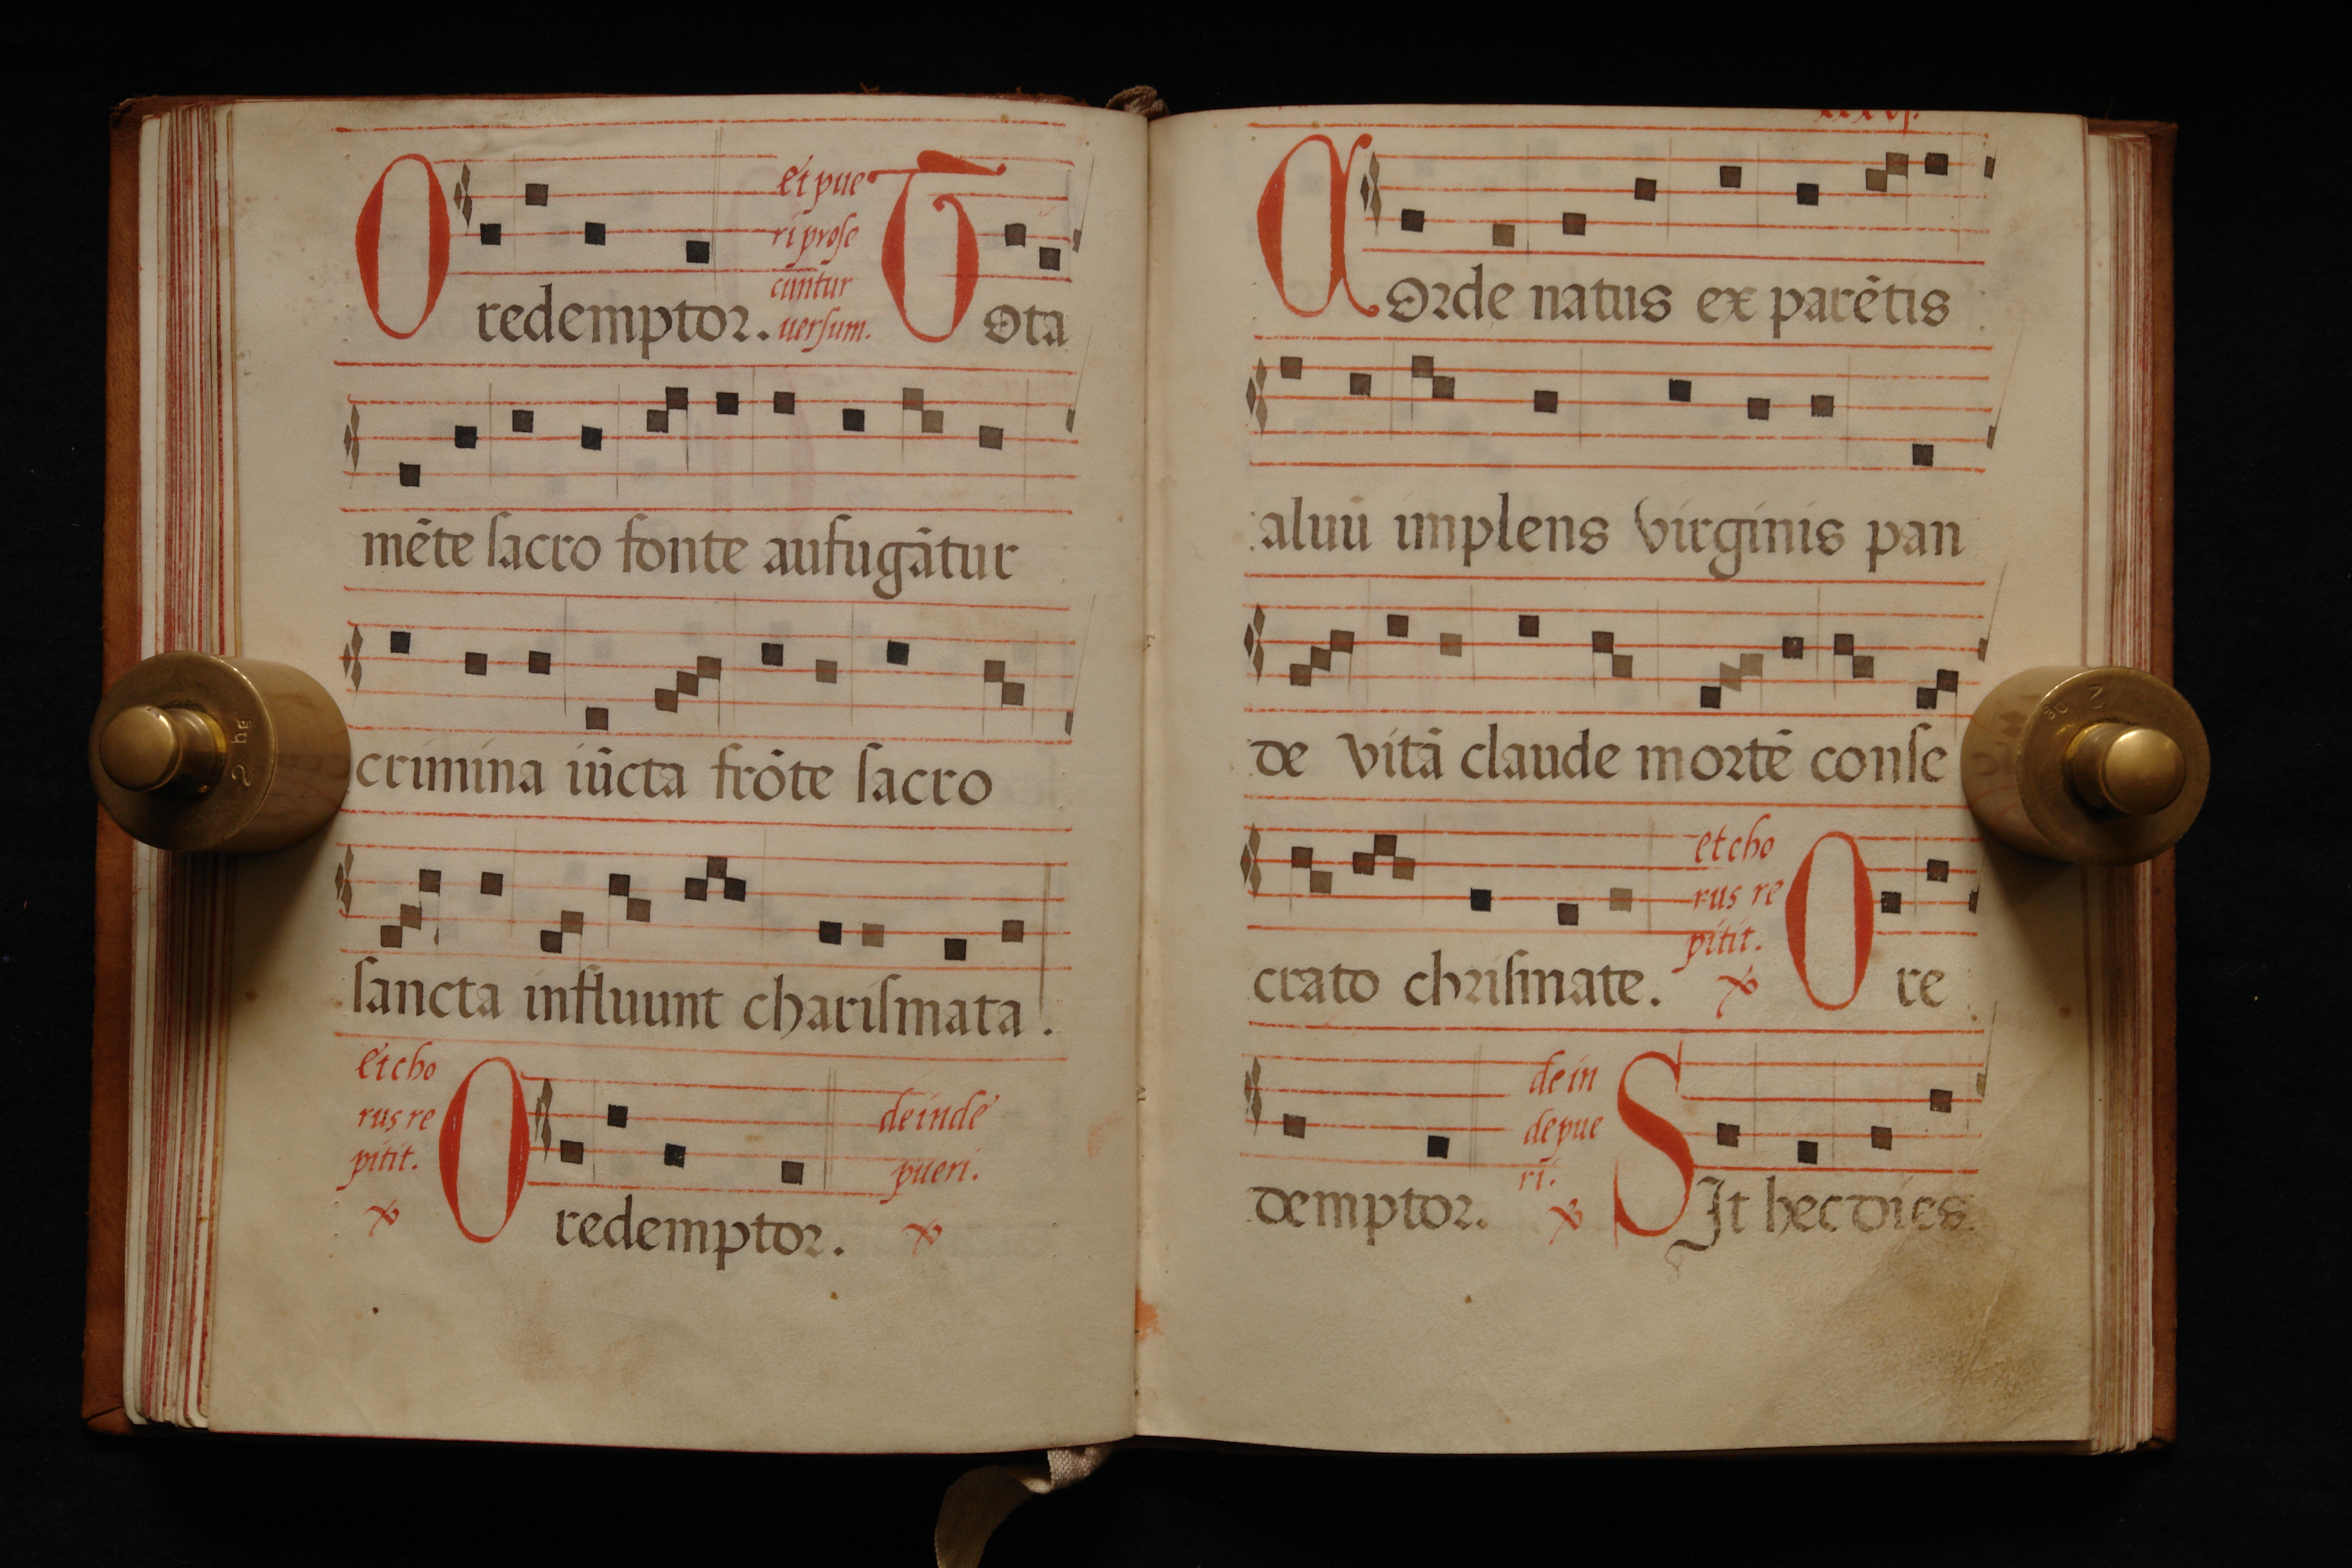 O redemptor. et pue
ri prose
cuntur
uersum. Tota
mēte sacro fonte aufugātur
crimina iūcta frōte sacro
sancta influunt charismata.
et cho
rus re
pitit. O redemptor. deinde
pueri.
Corde natus ex parētis
aluū implens virginis pan
de vitā claude mortē conse
crato chrismate. et cho
rus re
pitit. O re
demptor. dein
de pue
ri. Sit hec dies
2 hg